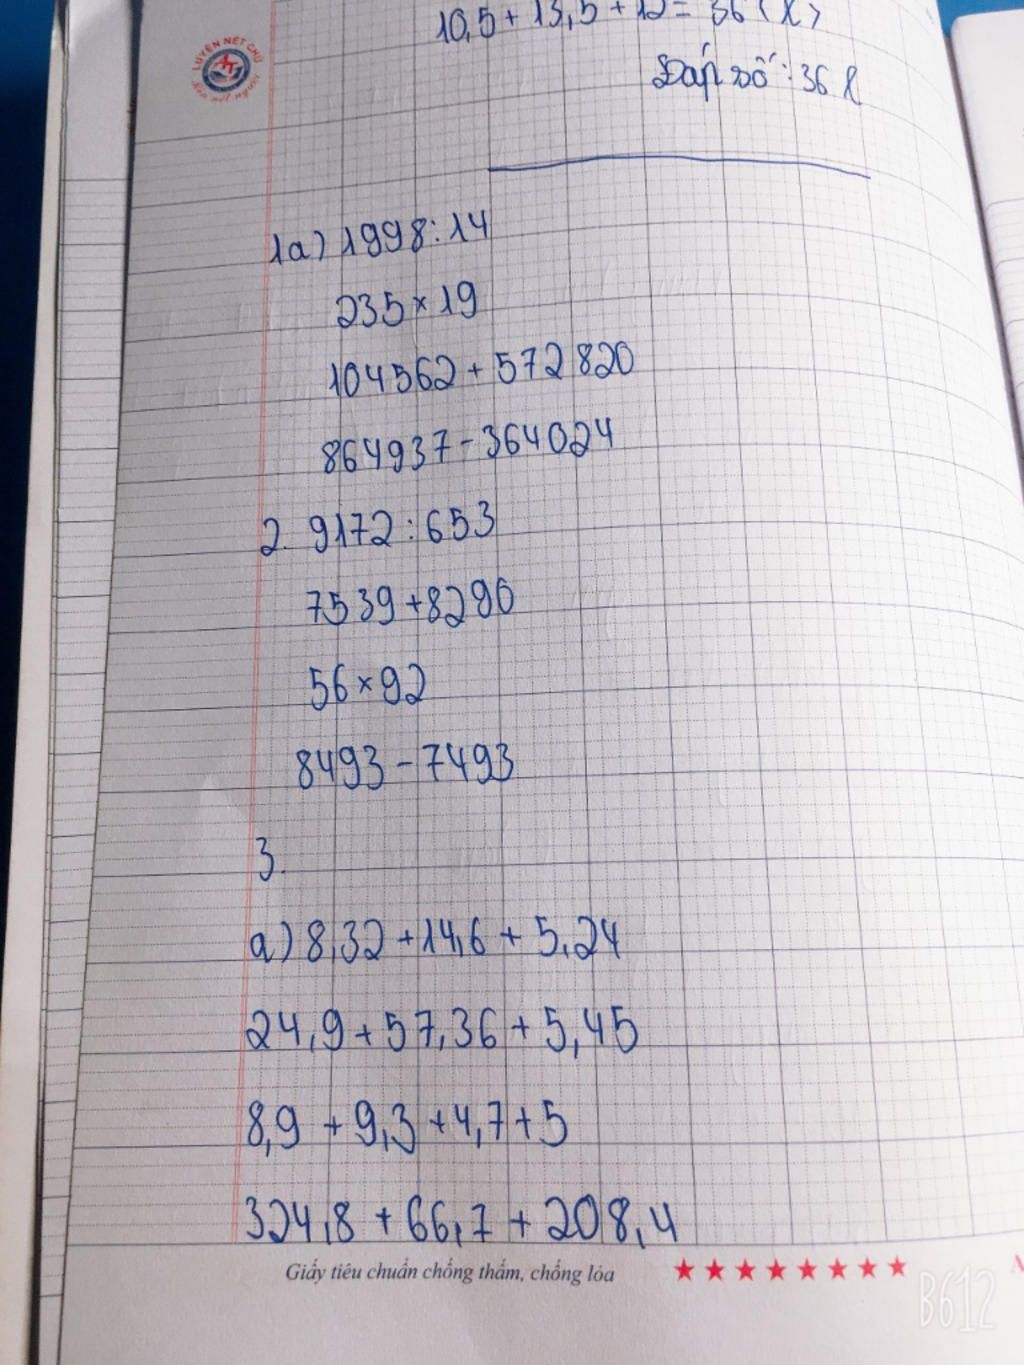 LUYỆN NÉT CHỮ
Rèn nết người
10,5 + 13,5 + 12 = 36 (l)
Đáp số: 36 l
1a) 1998 : 14
235 × 19
104562 + 572820
864937 - 364024
2. 9172 : 653
7539 + 8290
56 × 92
8493 - 7493
3.
a) 8,32 + 14,6 + 5,24
24,9 + 57,36 + 5,45
8,9 + 9,3 + 4,7 + 5
324,8 + 66,7 + 208,4
Giấy tiêu chuẩn chống thấm, chống lóa
B612